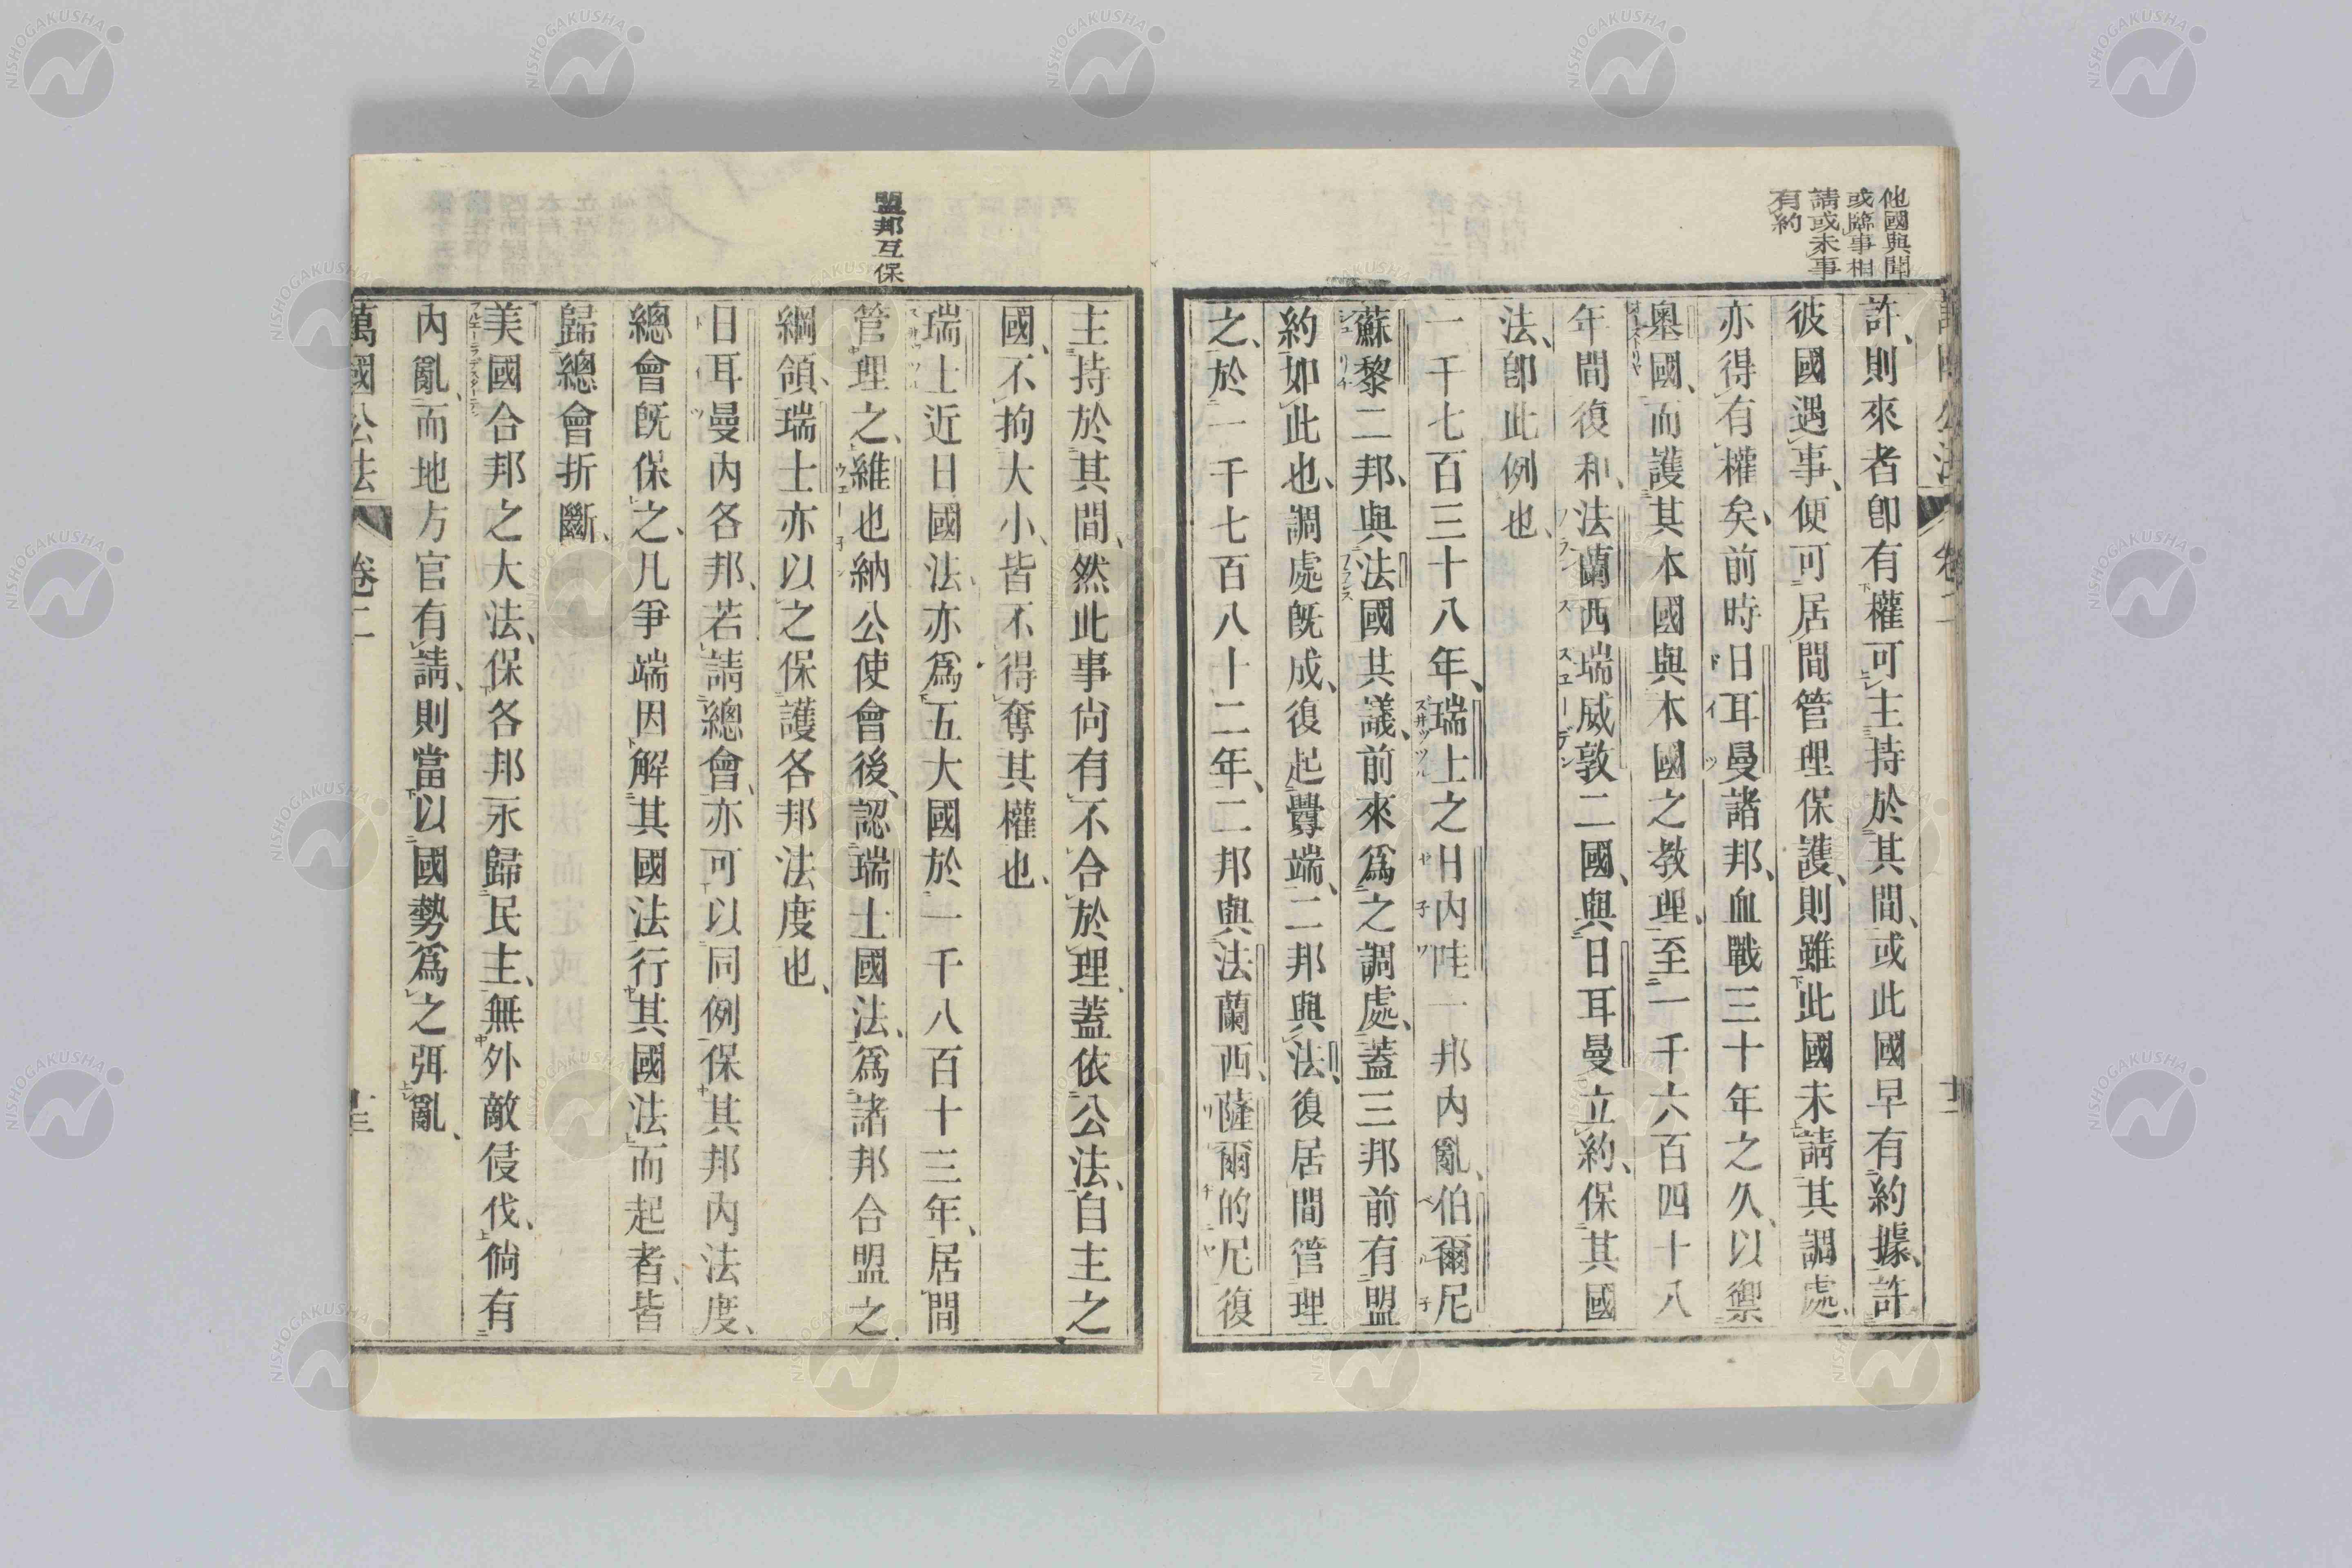 他國與聞
或臨事相
請或未事
有約
許、則來者卽有權可主持於其間、或此國早有約據、許
彼國遇事、便可居間管理保護、則雖此國未請其調處、
亦得有權矣、前時日耳曼諸邦、血戰三十年之久、以禦
奧國、而護其本國與本國之教理、至一千六百四十八
年間復和、法蘭西瑞威敦二國、與日耳曼立約、保其國
法、卽此例也、
一千七百三十八年、瑞士之日內哇一邦內亂、伯爾尼
蘇黎二邦、與法國共議、前來爲之調處、蓋三邦前有盟
約如此也、調處旣成、復起釁端、二邦與法、復居間管理
之、於一千七百八十二年、二邦與法蘭西、薩爾的尼復
盟邦互保
主持於其間、然此事尙有不合於理、蓋依公法、自主之
國、不拘大小、皆不得奪其權也、
瑞士近日國法、亦爲五大國於一千八百十三年、居間
管理之、維也納公使會後、認瑞士國法、爲諸邦合盟之
綱領、瑞士亦以之保護各邦法度也、
日耳曼內各邦、若請總會、亦可以同例保其邦內法度、
總會旣保之、凡爭端因解其國法行其國法而起者、皆
歸總會折斷、
美國合邦之大法、保各邦永歸民主、無外敵侵伐、倘有
內亂、而地方官有請、則當以國勢爲之弭亂、
萬國公法 卷二